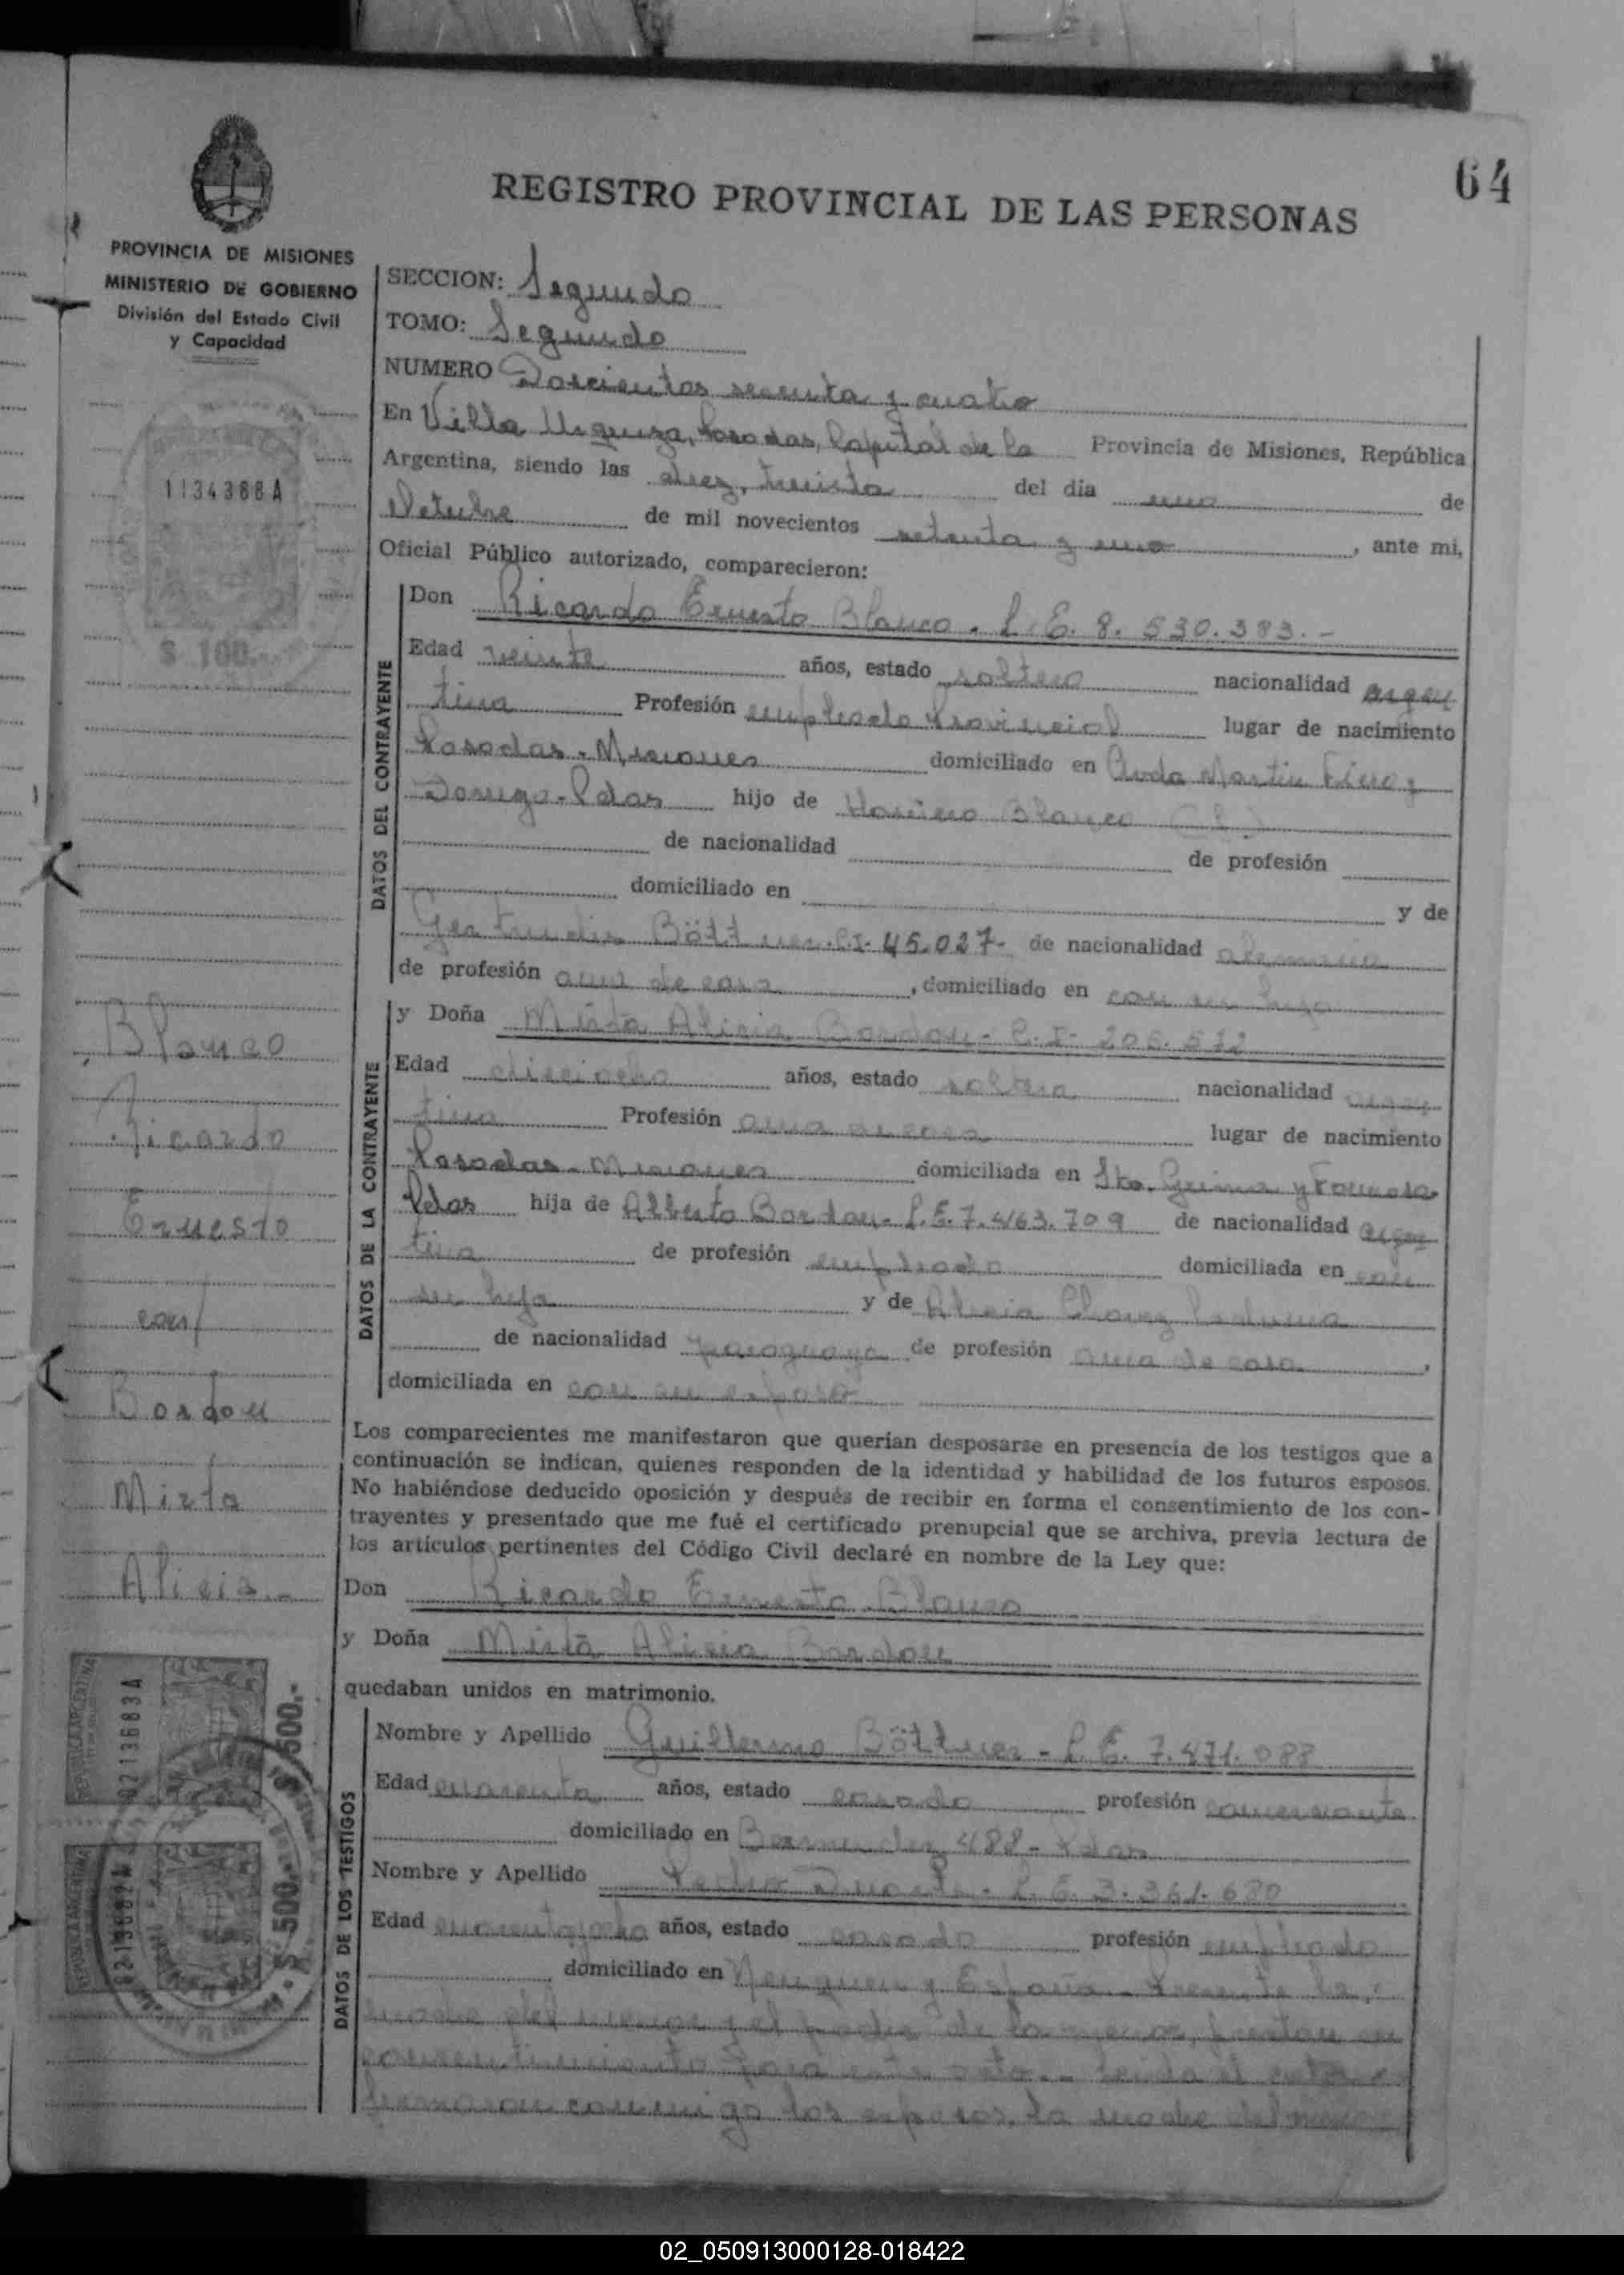 64
REGISTRO PROVINCIAL DE LAS PERSONAS
PROVINCIA DE MISIONES
MINISTERIO DE GOBIERNO
División del Estado Civil
y Capacidad
1134388 A
$ 100.-
SECCION: Segundo
TOMO: Segundo
NUMERO Doscientos sesenta y cuatro
En Villa Urquiza, Posadas, Capital de la Provincia de Misiones, República
Argentina, siendo las diez, treinta del día uno de
Octubre de mil novecientos setenta y uno, ante mi,
Oficial Público autorizado, comparecieron:
DATOS DEL CONTRAYENTE
Don Ricardo Ernesto Blanco. L.E. 8.530.383.-
Edad veinte años, estado soltero nacionalidad argen
tina Profesión empleado Provincial lugar de nacimiento
Posadas - Misiones domiciliado en Avda Martin Fierro y
Pdas hijo de Blanco
de nacionalidad de profesión
domiciliado en y de
Gertrudis Böttner. C.I. 45.027- de nacionalidad alemana
de profesión ama de casa, domiciliado en con su hijo
DATOS DE LA CONTRAYENTE
y Doña Mirta Alicia Bordon - C.I. 206.572
Edad dieciocho años, estado soltera nacionalidad argen
tina Profesión ama de casa lugar de nacimiento
Posadas - Misiones domiciliada en
Pdas hija de Alberto Bordon - L.E. 7.463.709 de nacionalidad argen
tina de profesión empleado domiciliada en con
su hija y de Alicia Chavez
de nacionalidad paraguaya de profesión ama de casa,
domiciliada en con su esposo
Los comparecientes me manifestaron que querían desposarse en presencia de los testigos que a
continuación se indican, quienes responden de la identidad y habilidad de los futuros esposos.
No habiéndose deducido oposición y después de recibir en forma el consentimiento de los con-
trayentes y presentado que me fué el certificado prenupcial que se archiva, previa lectura de
los artículos pertinentes del Código Civil declaré en nombre de la Ley que:
Don Ricardo Ernesto Blanco
y Doña Mirta Alicia Bordon
quedaban unidos en matrimonio.
DATOS DE LOS TESTIGOS
Nombre y Apellido Guillermo Böttner - L.E. 7.471.088
Edad cuarenta años, estado casado profesión comerciante
domiciliado en Bermudez 488 - Pdas
Nombre y Apellido Pedro Duarte - L.E. 3.361.680
Edad cuarentayocho años, estado casado profesión empleado
domiciliado en Neuquen y España - Presente la
madre del menor y el padre de la menor, prestan su
consentimiento para este acto. - Leida el acta
firmaron conmigo los esposos, la madre del menor
Blanco
Ricardo
Ernesto
con
Bordon
Mirta
Alicia.-
REPUBLICA ARGENTINA
0213683A
500.-
REPUBLICA ARGENTINA
$ 500.-
02_050913000128-018422